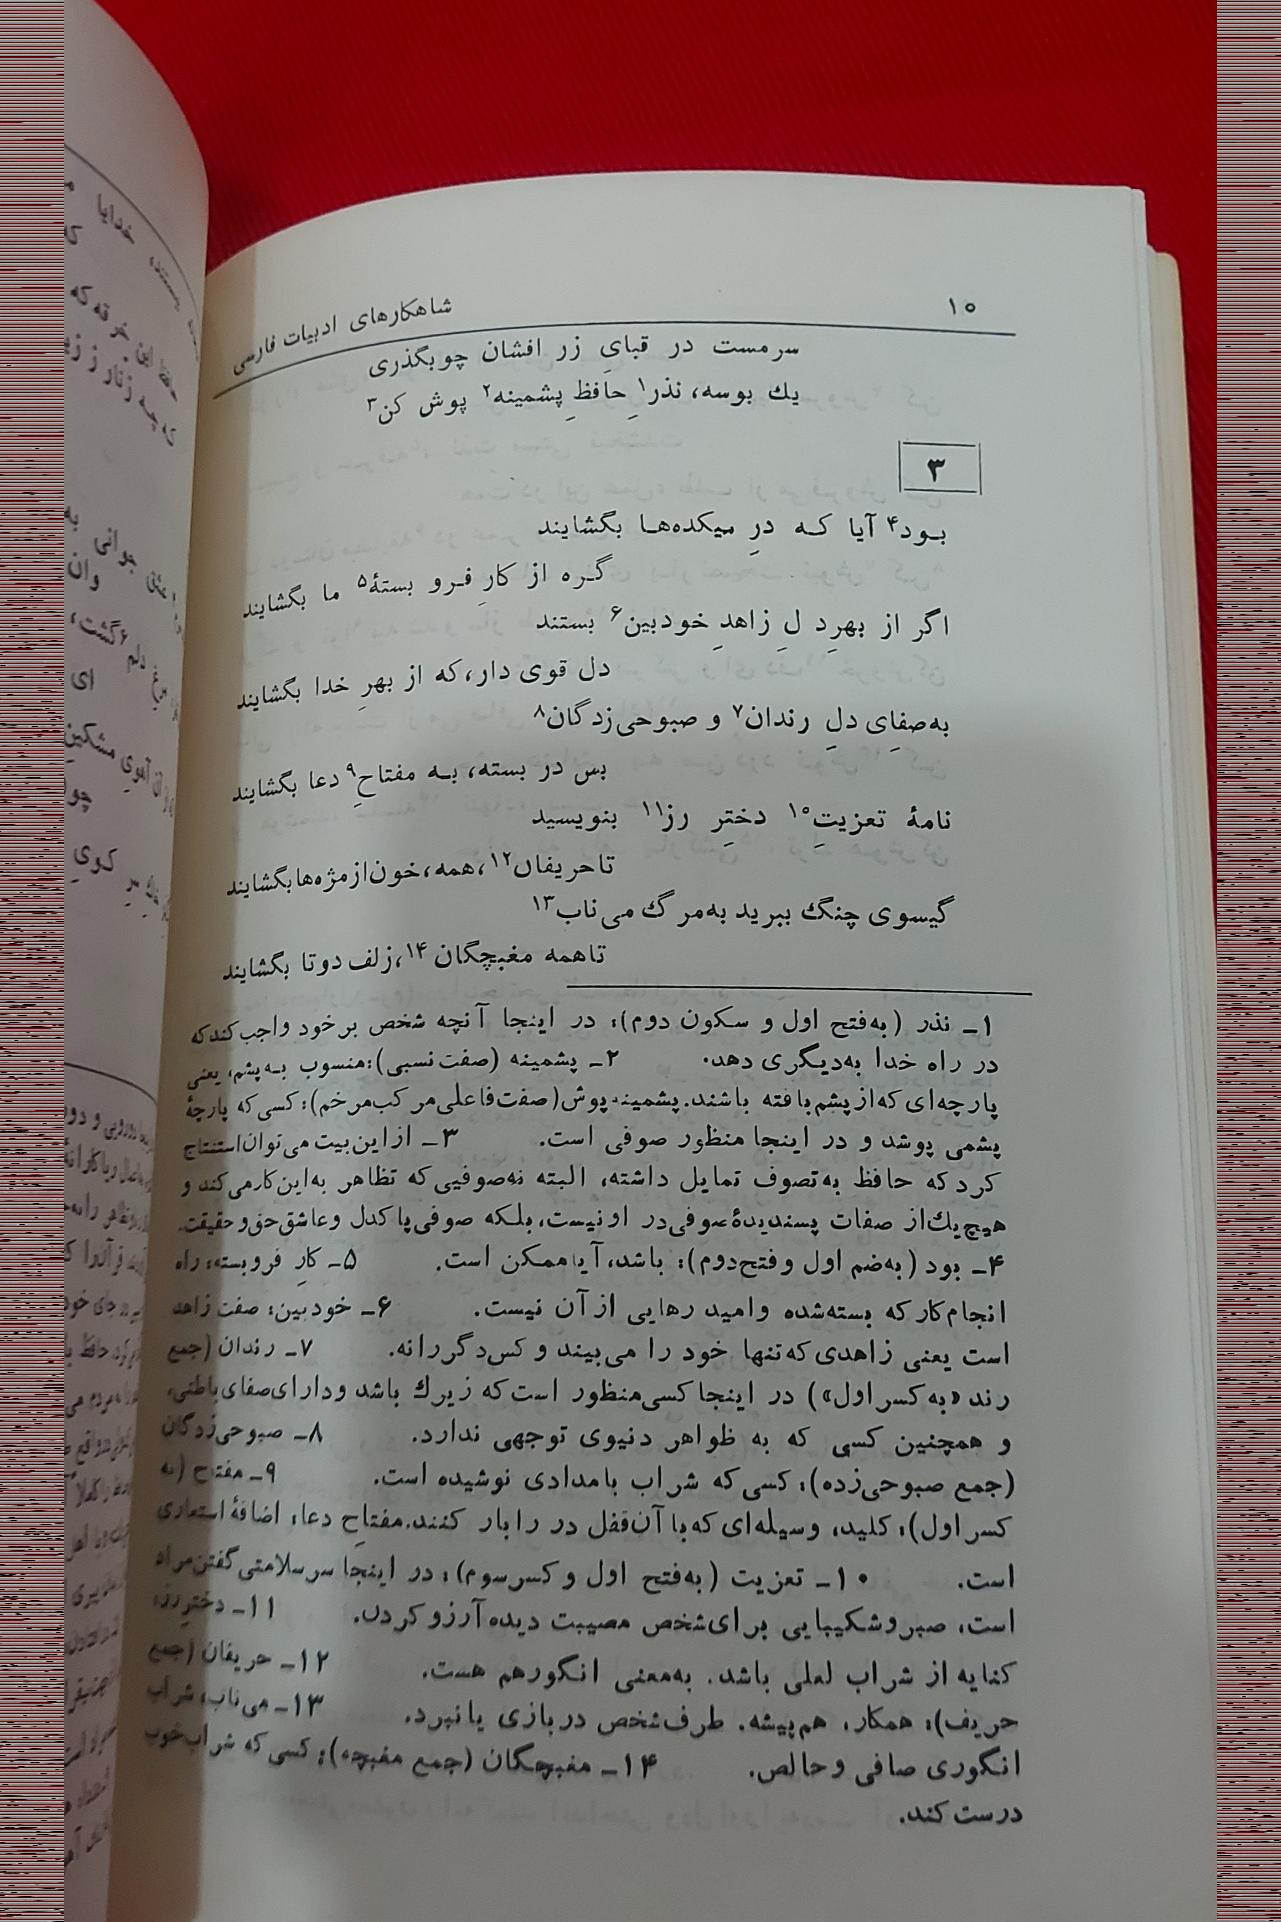 ۱۰
شاهکارهای ادبیات فارسی
سرمست در قبایِ زر افشان چوبگذری
یك بوسه، نذر۱ِ حافظِ پشمینه۲ پوش کن۳
۳
بود۴ آیا که درِ میکده‌ها بگشایند
گره از کارِ فرو بستهٔ۵ ما بگشایند
اگر از بهرِ دلِ زاهدِ خودبین۶ بستند
دل قوی دار، که از بهرِ خدا بگشایند
به‌صفایِ دلِ رندان۷ و صبوحی‌زدگان۸
بس در بسته، به مفتاحِ۹ دعا بگشایند
نامهٔ تعزیتِ۱۰ دخترِ رز۱۱ بنویسید
تا حریفان۱۲، همه، خون از مژه‌ها بگشایند
گیسوی چنگ ببرید به‌مرگ می ناب۱۳
تا همه مغبچگان۱۴، زلف دوتا بگشایند
۱ـ نذر (به‌فتح اول و سکون دوم): در اینجا آنچه شخص بر خود واجب کند که
در راه خدا به‌دیگری دهد. ۲ـ پشمینه (صفت نسبی): منسوب به پشم، یعنی
پارچه‌ای که از پشم بافته باشند. پشمینه پوش (صفت فاعلی مرکب مرخم): کسی که پارچهٔ
پشمی پوشد و در اینجا منظور صوفی است. ۳ـ از این بیت می‌توان استنتاج
کرد که حافظ به‌تصوف تمایل داشته، البته نه‌صوفیی که تظاهر به‌این کار می‌کند و
هیچ‌یك از صفات پسندیدهٔ صوفی در او نیست، بلکه صوفی پاکدل و عاشق حق و حقیقت.
۴ـ بود (به‌ضم اول و فتح دوم): باشد، آیا ممکن است. ۵ـ کارِ فروبسته: راه
انجام کار که بسته شده و امید رهایی از آن نیست. ۶ـ خودبین: صفت زاهد
است یعنی زاهدی که تنها خود را می‌بیند و کس دگر را نه. ۷ـ رندان (جمع
رند «به کسر اول») در اینجا کسی منظور است که زیرك باشد و دارای صفای باطنی،
و همچنین کسی که به ظواهر دنیوی توجهی ندارد. ۸ـ صبوحی‌زدگان
(جمع صبوحی‌زده): کسی که شراب بامدادی نوشیده است. ۹ـ مفتاح (به
کسر اول): کلید، وسیله‌ای که با آن قفل در را باز کنند. مفتاحِ دعا: اضافهٔ استعاری
است. ۱۰ـ تعزیت (به‌فتح اول و کسر سوم): در اینجا سر سلامتی گفتن مراد
است، صبر و شکیبایی برای شخص مصیبت دیده آرزو کردن. ۱۱ـ دخترِ رز:
کنایه از شراب لعلی باشد. به‌معنی انگور هم هست. ۱۲ـ حریفان (جمع
حریف): همکار، هم‌پیشه. طرف شخص در بازی یا نبرد. ۱۳ـ می ناب: شراب
انگوری صافی و خالص. ۱۴ـ مغبچگان (جمع مغبچه): کسی که شراب خوب
درست کند.